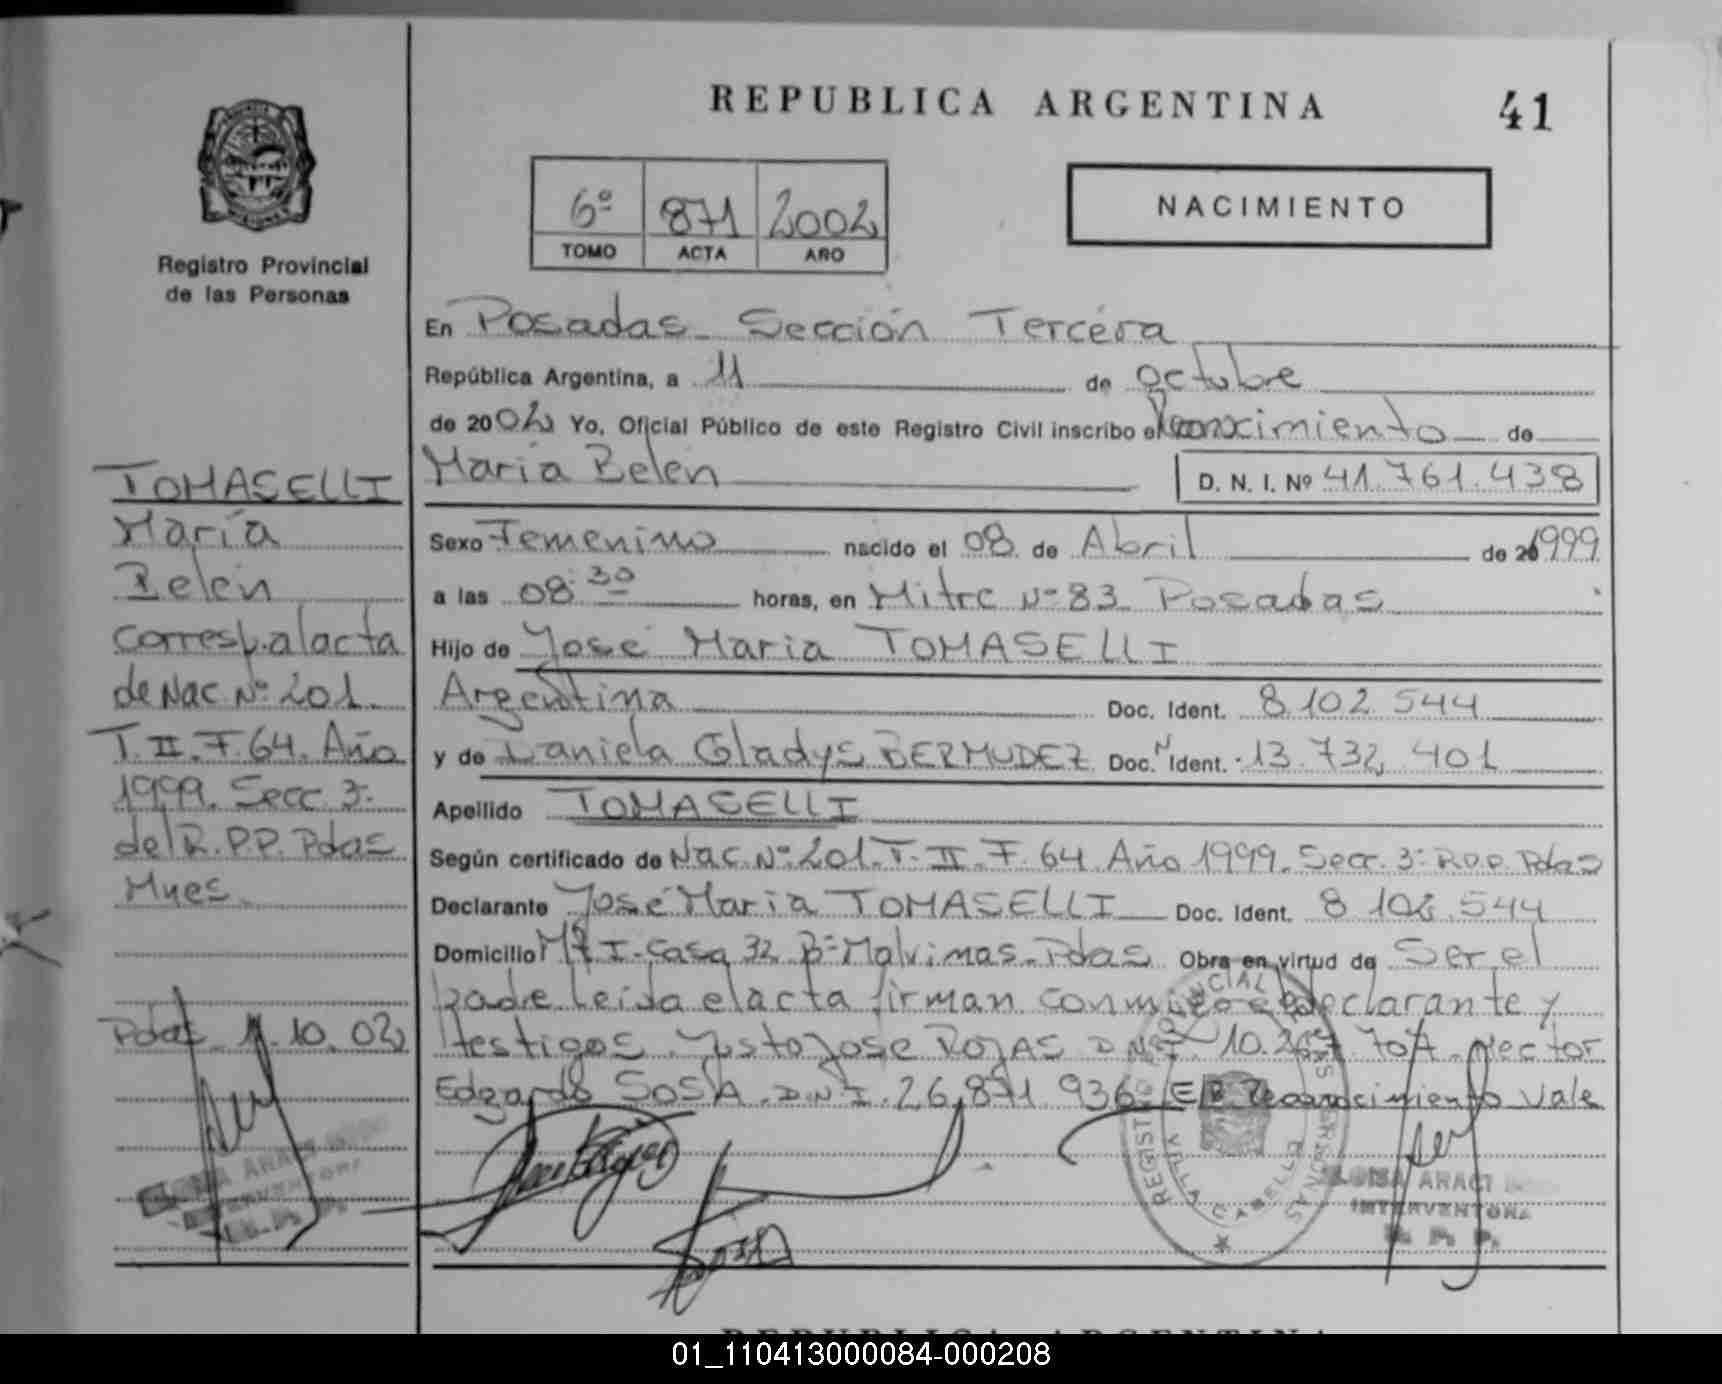 REPUBLICA ARGENTINA
41
6º 871 2002
TOMO ACTA AÑO
NACIMIENTO
Registro Provincial
de las Personas
En Posadas Sección Tercera
República Argentina, a 11 de octubre
de 2002 Yo, Oficial Público de este Registro Civil inscribo el Reconocimiento de
María Belén D. N. I. Nº 41.761.438
Sexo Femenino nacido el 08 de Abril de 1999
a las 08:30 horas, en Mitre Nº 83 Posadas
Hijo de José Maria TOMASELLI
Argentina Doc. Ident. 8.102.544
y de Daniela Gladys BERMUDEZ Doc. N Ident. 13.732.401
Apellido TOMASELLI
Según certificado de Nac. Nº 201. T. II. F. 64. Año 1999. Secc. 3ª R.P.P. Pdas
Declarante José Maria TOMASELLI Doc. Ident. 8.102.544
Domicilio I-casa 32 Bº Malvinas-Pdas Obra en virtud de Ser el
padre Leida el acta firman conmigo el declarante y
testigos Justo Jose ROJAS D.N.I. 10. Hector
Edgardo SOSA D.N.I. 26.871.936 E/R Reconocimiento Vale
TOMASELLI
María
Belén
corresp. al acta
de Nac. Nº 201.
T. II. F. 64. Año
1999. Secc 3ª
del R.P.P. Pdas
Mnes.
Pdas 11.10.02
REGISTRO PROVINCIAL DE LAS PERSONAS
VILLA CABELLO
ELOISA ARACI
INTERVENTORA
R. P. P.
ARACI
INTERVENTORA
R. P. P.
REPUBLICA ARGENTINA
01_110413000084-000208